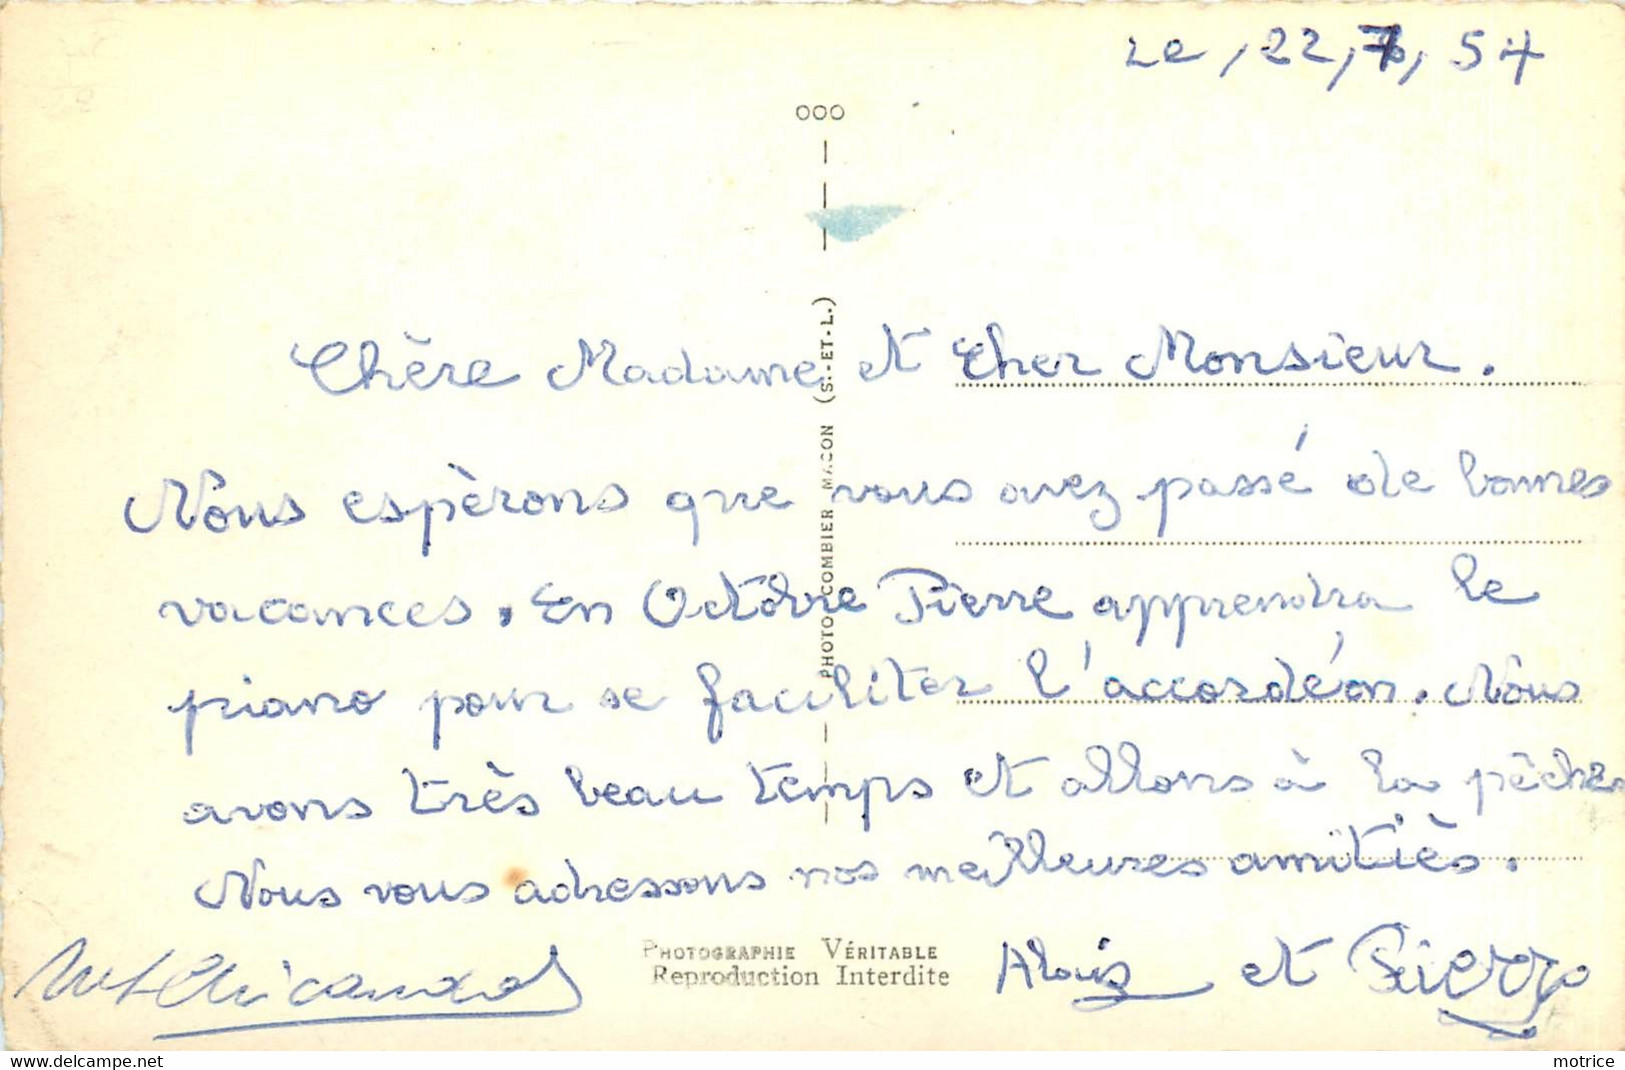 Le, 22, 7, 54
000
Chère Madame et Cher Monsieur.
Nous espèrons que vous avez passé de bonnes
vacances. En Octobre Pierre apprendra le
piano pour se faciliter l'accordéon. Nous
avons très beau temps et allons à la pêche
Nous vous adressons nos meilleures amitiès.
Alois et Pierre
PHOTOGRAPHIE VÉRITABLE
Reproduction Interdite
PHOTO COMBIER MACON (S.-ET-L.)
www.delcampe.net
motrice